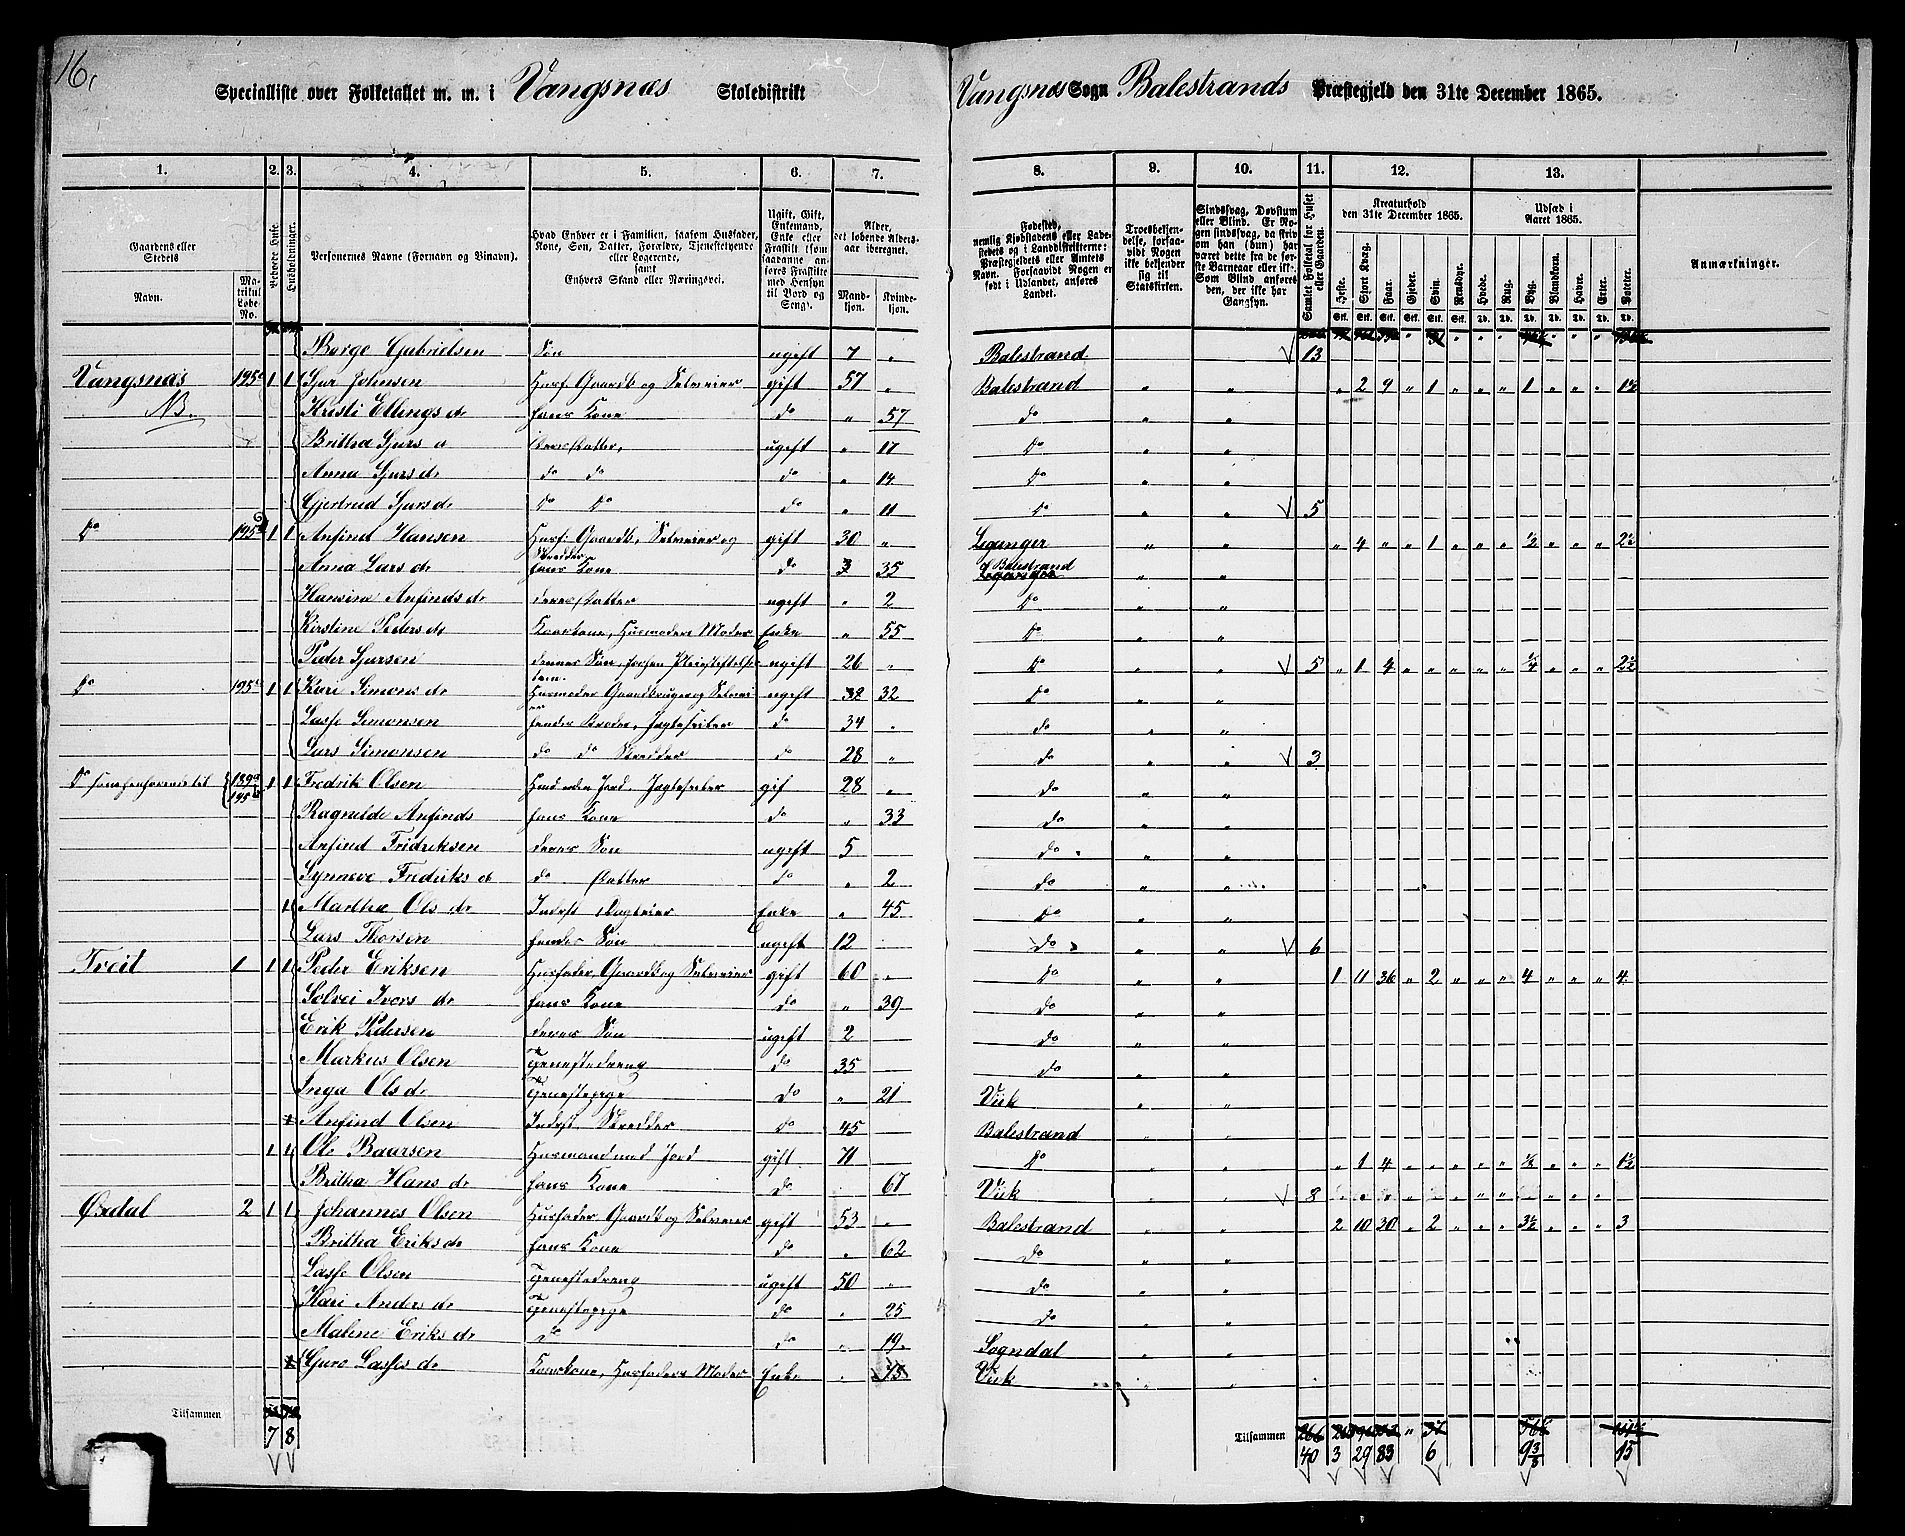 16,
Specialliste over Folketallet m. m. i Vangsnæs Skoledistrikt Vangsnæs Sogn Balestrands Præstegjeld den 31te December 1865.
1. 2. 3. 4. 5. 6. 7. 8. 9. 10. 11. 12. 13.
Gaardens eller Stedets Navn. Matrikul Løbe-No. Beboede Huse. Husholdninger. Personernes Navne (Fornavn og Tilnavn).
Hvad Enhver er i Familien, saasom Husfader, Kone, Søn, Datter, Forældre, Tjenestetyende eller Logerende, samt Enhvers Stand eller Næringsvei.
Ugift, Gift, Enkemand, Enke eller Fraskilt
Alder, det løbende Aldersaar iberegnet. Mandkjøn. Kvindekjøn.
Fødested,
Troesbekjendelse, forsaavidt Nogen ikke bekjender sig til Statskirken.
Samlet Folketal for Huset eller Gaarden.
Kreaturhold den 31te December 1865. Heste. Stort Kvæg. Faar. Gjeder. Sviin. Rensdyr.
Udsæd i Aaret 1865. Hvede. Rug. Byg. Blandkorn. Havre. Erter. Poteter.
Anmærkninger.
Børge Gabrielsen Søn ugift 7 " Balestrand 13
Vangsnæs 195 1 1 Sjur Johnsen Husf. Gaardb. og Selveier gift 57 " Balestrand " " " 2 9 " 1 " " " 1 " " " 1½
NB. Kristi Ellings d. hans Kone do " 57 do " "
Britha Sjurs d deres Datter, ugift " 17 do " "
Anna Sjurs d. do do do " 14 do " "
Gjertrud Sjurs d. do do do " 11 do " " 5
do 195 1 1 Anfind Hansen Husf. Gaardb., Selveier og Skredder gift 30 " Leganger " " " 4 " " 1 " " " ½ " " " 2½
Anna Lars d. hans Kone do 35 Balestrand " "
Hansine Anfinds d. deres Datter ugift " 2 do " "
Kirstine Peders d. Kaarkone, Husmoders Moder Enke " 55 do " "
Peder Sjursen ugift 26 " do " " 5 " 1 4 " " " " " ¼ " " " 2½
do 195 1 1 Kari Simons d. Husmoder Gaardbruger og Selveier ugift 32 do " "
Lasse Simonsen hendes Broder, Jægteseiler do 34 " do " "
Lars Simonsen do do Skredder do 28 " do " " 3
do 189 195 1 1 Fredrik Olsen Huusm. uden Jord, Jægteseiler gif 28 " do " "
Ragnilde Anfinds hans Kone do " 33 do " "
Anfind Fridriksen deres Søn ugift 5 do " "
Synneve Fredriks d. do Datter do " 2 do " "
1 Martha Ols d. Inderst Dagleier Enke " 45 do " "
Lars Thorsen hendes Søn ugift 12 do " " 6
Treit 1 1 1 Peder Eriksen Husfader, Gaardb. og Selveier gift 60 " do " " 1 11 36 " 2 " " " 4 " " " 4
Solvei Ivers d. hans Kone do " 39 do " "
Erik Pedersen deres Søn ugift 2 do " "
Markus Olsen Tjenestedreng do 35 do " "
Inga Ols d. Tjenestepige do " 21 Viik " "
Anfind Olsen Inderst Skredder do 45 Balestrand " "
1 1 Ole Baarsen Husmand med Jord gift 71 do " " " 1 4 " " " " " ½ " " " 1½
Britha Hans d. hans Kone do 67 Viik " " 8
Ørdal 2 1 1 Johannes Olsen Husfader Gaardb. og Selveier gift 53 " Balestrand " " 2 10 30 " 2 " " " 3½ " " " 3
Britha Eriks d. hans Kone do " 62 do " "
Lasse Olsen Tjenestedreng ugift 50 " do " "
Kari Anders d. Tjenestepige do " 25 do " "
Malene Eriks d. do do " 19 Sogndal " "
Guro Lasses d. Kaarkone, Husfaders Moder Enke " 75 Viik " "
Tilsammen 7 8 Tilsammen 40 3 29 83 " 6 9⅜ 15